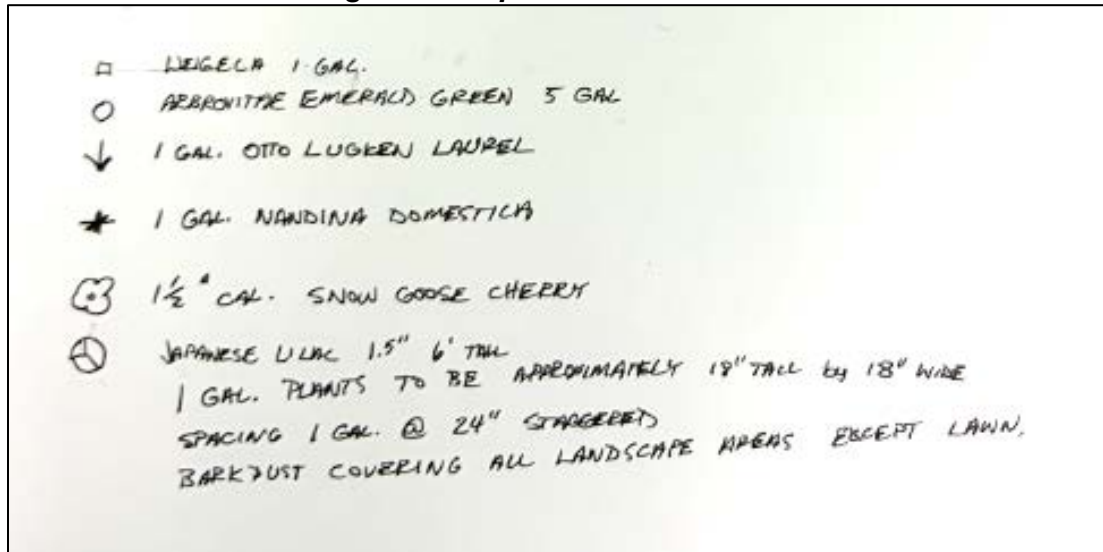 WEIGELA 1 GAL.
ARBROVITAE EMERALD GREEN 5 GAL
1 GAL. OTTO LUGKEN LAUREL
1 GAL. NANDINA DOMESTICA
1 1/2" CAL. SNOW GOOSE CHERRY
JAPANESE LILAC 1.5" 6' TALL
1 GAL. PLANTS TO BE APPROXIMATELY 18" TALL by 18" WIDE
SPACING 1 GAL. @ 24" STAGGERED
BARKDUST COVERING ALL LANDSCAPE AREAS EXCEPT LAWN.